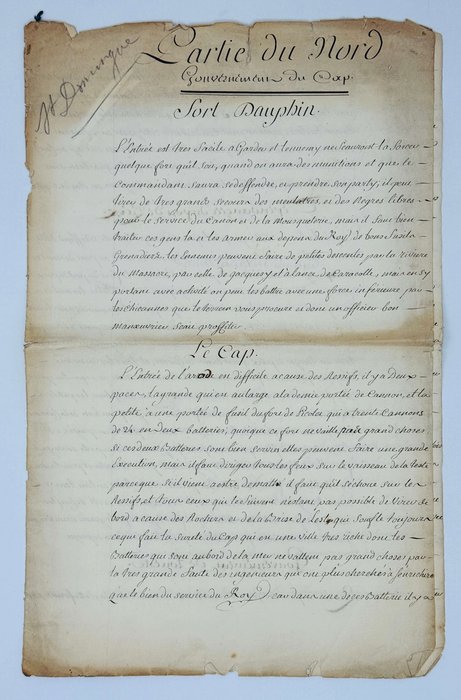 St Domingue
Partie du Nord
Gouvernement du Cap.
Fort Dauphin.
L'Entrée est tres facile a Garder et l'ennemy ne scauroit la forcer
quelque fort qu'il soit, quand on aura des munitions et que le
Commandant saura se deffendre, et prendre son party, il peut
tirer de tres grands secours des mulatres, et des Negres libres
pour le service du Canon et de la Mousqueterie, mais il faut bien
traiter ces gens la et les armer aux depens du Roy de bons fusils
Grenadiers, les Ennemis peuvent faire de petites descentes par la riviere
du Massacre, par celle de Jacquesy et a l'ance de Caracolle, mais en s'y
portant avec activité on peut les battre avec une force inferieure par
les Chicannes que le terrein vous procure et dont un officier bon
manœuvrier scait proffiter.
Le Cap.
L'Entrée de la rade est difficile a cause des Ressifs, il y a Deux
passes, la grande qui est au large a la demie portée de Cannon, et la
petite, à une portée de fusil du fort de Picolet qui a trente Cannons
de 24 en Deux batteries, quoique ce fort ne vaille pas grand chose,
si ces deux Batteries sont bien servies elles peuvent faire une grande
Execution, mais il faut diriger tous les feux sur le vaisseau de la teste
parceque s'il vient a estre dematé il faut qu'il s'échoue sur les
Ressifs, et tous ceux qui le suivent n'etant pas possible de virer de
bord a cause des Rochers et de la Brise de l'est qui souffle toujours
ce qui fait la sureté du Cap qui est une ville tres riche dont les
Batteries qui sont au bord de la mer ne vallent pas grand chose par
la tres grande faute des ingenieurs qui ont plus cherché a s'enrichir
que le bien du service du Roy, car dans une de ces Batterie il y a